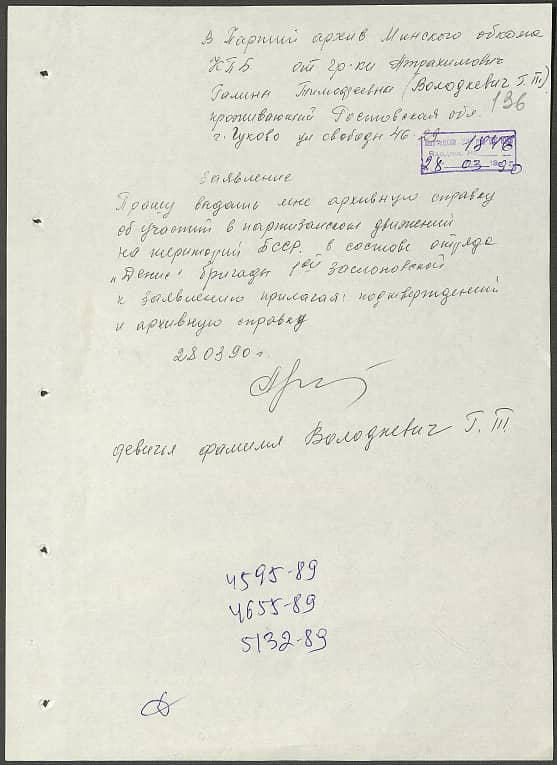 В Партий архив Минского обкома
КПБ от гр-ки Атрахимович
Галина Тимофеевна (Володкевич Г. Т.)
проживающий Ростовская обл.
136
г. Гуково ул свободы 46-29
1846
28 03 90
Заявление
Прошу выдать мне архивную справку
об участий в партизанском движений
на територий БССР. в составе отряда
"Дении" бригады 1ой Заслоновской
к заявлению прилагаю: подтверждений
и архивную справку
28 03 90 г.
девичья фамилия Володкевич Г. Т.
4595-89
4655-89
5132-89